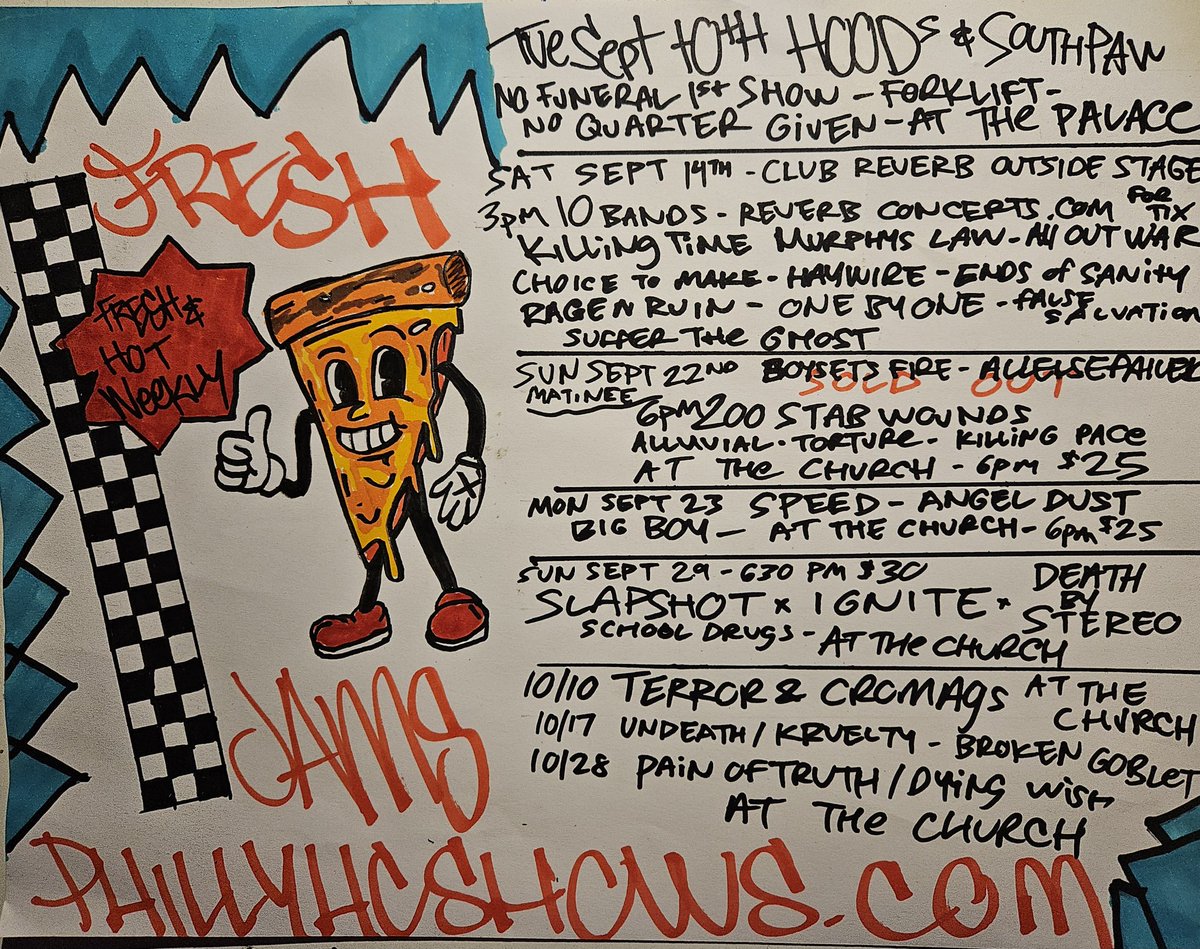 FRESH
FRESH &
HOT
WEEKLY
JAMS
TUE Sept 10TH HOODS & SOUTHPAW
NO FUNERAL 1ST SHOW - FORKLIFT -
NO QUARTER GIVEN - AT THE PALACE
SAT SEPT 14TH - CLUB REVERB OUTSIDE STAGE
3pm 10 BANDS - REVERB CONCERTS.COM FOR TIX
KILLING TIME MURPHYS LAW - All OUT WAR
CHOICE TO MAKE - HAYWIRE - ENDS of SANITY
RAGE N RUIN - ONE BY ONE - FALSE SALVATION
SUFFER THE GHOST
SUN SEPT 22ND BOYSETS FIRE - ALLELSEFAILED
SOLD OUT
MATINEE
6PM 200 STAB WOUNDS
ALLUVIAL · TORTURE - KILLING PACE
AT THE CHURCH - 6pm $25
MON SEPT 23 SPEED - ANGEL DUST
BIG BOY - AT THE CHURCH - 6pm $25
SUN SEPT 29 - 630 PM $30
SLAPSHOT x IGNITE x DEATH BY STEREO
SCHOOL DRUGS - AT THE CHURCH
10/10 TERROR & CROMAGS AT THE CHURCH
10/17 UNDEATH / KRUELTY - BROKEN GOBLET
10/28 PAIN OF TRUTH / DYING WISH
AT THE CHURCH
PHILLYHCSHOWS.COM